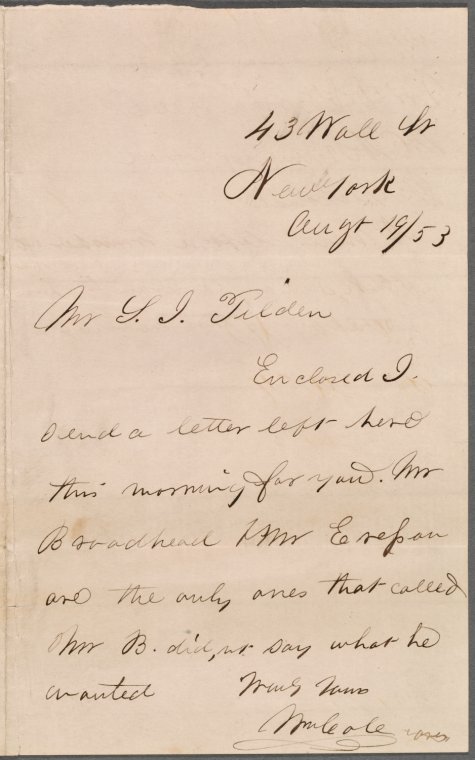 43 Wall St
New York
Augt 19/53
Mr S. J. Tilden
Enclosed I.
send a letter left here
this morning for you. Mr
Broadhead & Mr
are the only ones that called
Mr B. did,nt say what he
wanted Truly Yours
Wm Cole